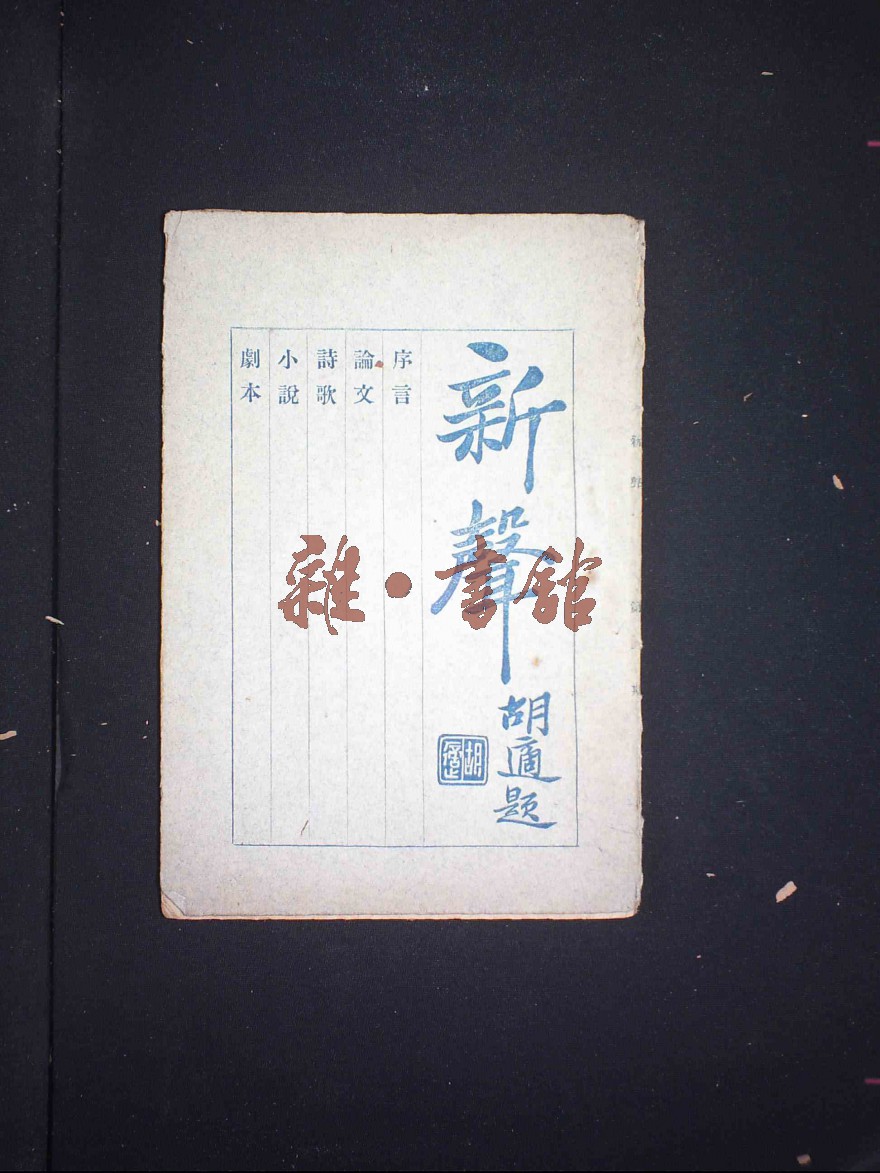 新聲
胡適題
胡適
序言
論文
詩歌
小說
劇本
雜·書館